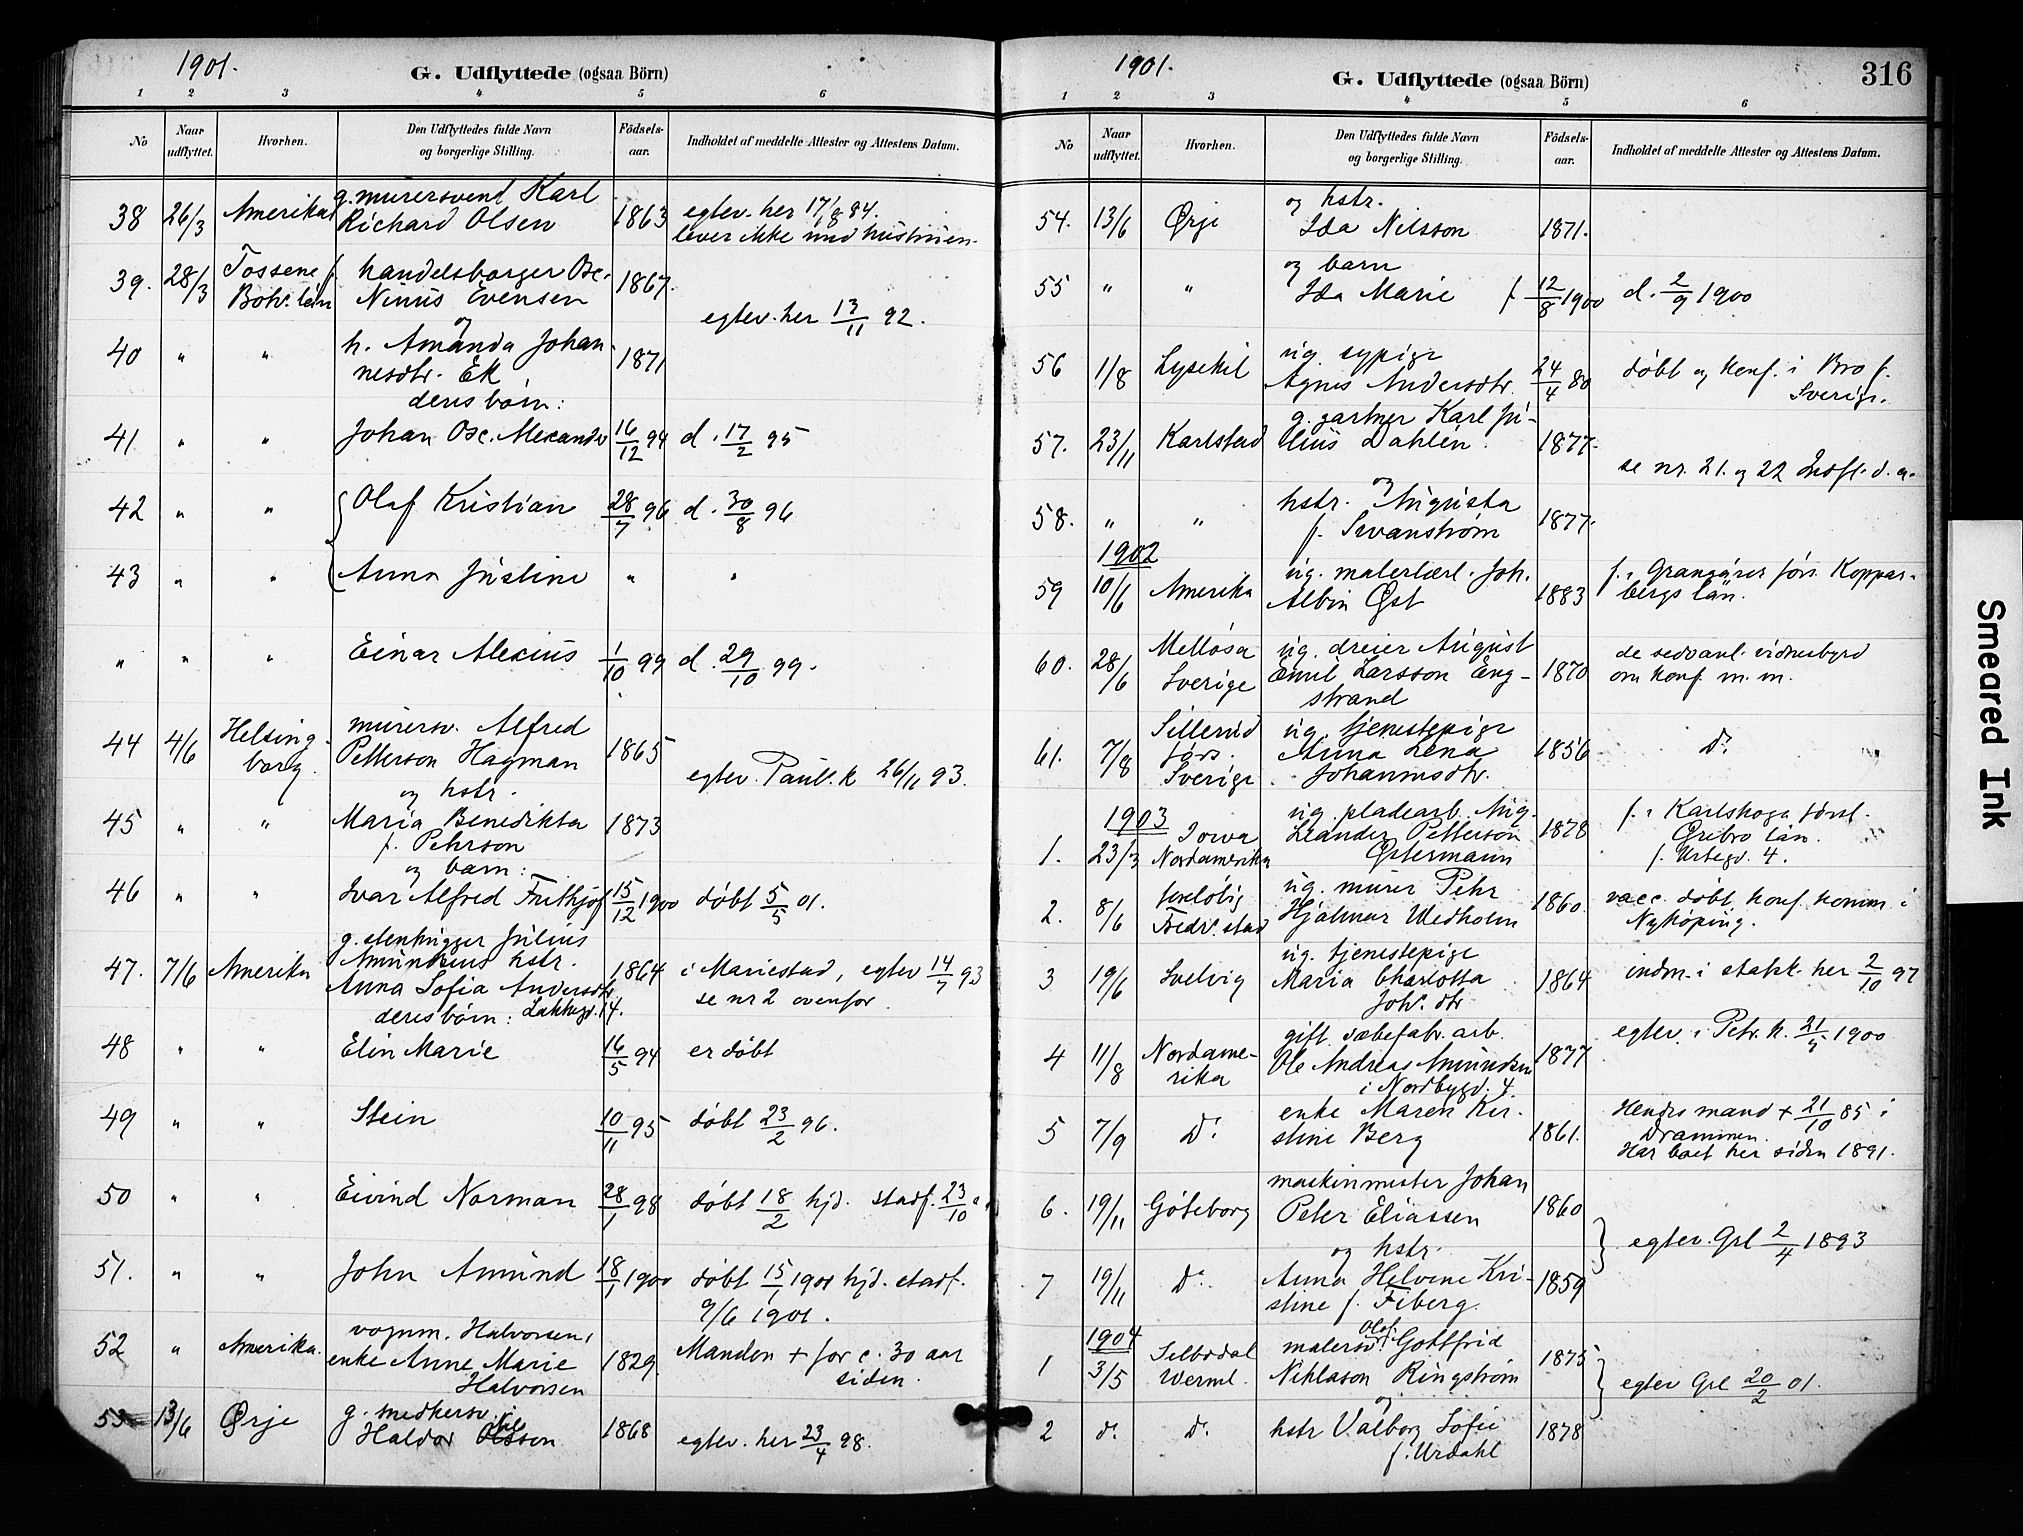 1901.
G. Udflyttede (ogsaa Börn)
1 2 3 4 5 6
No
Naar udflyttet.
Hvorhen.
Den Udflyttedes fulde Navn og borgerlige Stilling.
Födsels-aar.
Indholdet af meddelte Attester og Attestens Datum.
38 26/3 Amerika g. murersvend Karl Richard Olsen 1863 egtev. her 17/8 84. lever ikke med hustruen.
39. 28/3 Tossene f. Boh. län handelsborger Osc. Ninus Evensen 1867. egtev. her 13/11 92.
og
40 " " h. Amanda Johannesdtr. Ek 1871
deres børn:
41 " " Johan Osc. Alexander 16/12 94 d. 17/2 95
42 " " Olaf Kristian 28/7 96 d. 30/8 96
43 " " Anna Justine " "
" " " Einar Alexius 1/10 99 d. 29/10 99.
44 4/6 Helsingborg murersv. Alfred Petterson Hagman 1865 egtev. Paul. k 26/11 93.
og hstr.
45 " " Maria Benedikta f. Pehrson 1873
og barn:
46 " " Ivar Alfred Frithjof 15/12 1900 døbt 5/5 01.
47. 7/6 Amerika g. stenhugger Julius Amundsens hstr. Anna Sofia Andersdtr 1864 i Mariestad, egtev 14/7 93 se nr 2 ovenfor.
deres børn: Lakkegd. 14.
48 " " Elin Marie 16/5 94 er døbt
49 " " Stein 10/11 95 døbt 23/2 96.
50 " " Eivind Norman 28/1 98 døbt 18/2 hjd. stadf. 23/10
51. " " John Amund 18/1 1900 døbt 15/1 1901 hjd. stadf. 9/6 1901.
52 " Amerika. vognm. Halvorsen, enke Anne Marie Halvorsen 1829. Manden + for c. 30 aar siden.
53 13/6 Ørje g. smedkersv. Haldor 1868 egtev. her 23/4 98.
1901.
G. Udflyttede (ogsaa Börn)
316
1 2 3 4 5 6
No
Naar udflyttet.
Hvorhen.
Den Udflyttedes fulde Navn og borgerlige Stilling.
Födsels-aar.
Indholdet af meddelte Attester og Attestens Datum.
54. 13/6 Ørje og hstr. Ida Nilsson 1871.
55 " " og barn Ida Marie f 12/8 1900 d. 2/9 1900
56 1/8 Lysekil ug. sypige Agnes Andersdtr. 24/4 80 døbt og konf. i Bro f. Sverige.
57. 23/11 Karlstad g. gartner Karl Julius Dahlén. 1877. se nr. 21. og 22 Indfl. d. a.
og
58. " " hstr. Augusta f. Swanstrøm 1877.
1902
59 10/6 Amerika ug. malerlærl. Joh. Albin Øst 1883 f. i Grangäres förs. Kopparbergs län.
60. 28/6 Mellösa Sverige ug. dreier August Emil Larsson Engstrand 1870 de sedvanl. vidnesbyrd om konf. m. m.
61. 7/8 Sillerud förs. Sverige ug. tjenestepige Anna Lena Johannisdtr. 1856 Do
1903
1. 23/3 Iowa Nordamerika ug. pladearb. Aug. Leander Petterson Ostermann 1878 f. i Karlskoga förs. Örebro län. f. Urtegd. 4.
2. 8/6 foreløbig Fredr.stad ug. murer Pehr Hjalmar Wedholm 1860. vacc. døbt, konf. komm. i Nykøping.
3 19/6 Svelvig ug. tjenestepige Maria Charlotta Joh. dtr. 1864 indm. i statsk. her 2/10 97
4 11/8 Nordamerika gift sæbefabr. arb. Ole Andreas Amundsen i Nordbygd. 4. 1877 egtev. i Petr. k. 21/ 1900
5 7/9 Do enke Maren Kirstine Berg 1861. Hendes mand + 21/10 85 i Drammen. Har boet her siden 1891.
6. 19/11 Göteborg maskinmester Johan Peter Eliassen 1860
og hstr. egtev. Grl 2/4 1893
7 19/11 Do Anna Helvine Kristine f. Fiberg. 1859
1904
1 3/5 Silbodal Werml. malersv. Olof Gottfrid Niklason Ringstrøm 1875 egtev Grl 20/2 01.
og
2 d. Do hstr Valborg Sofie f. Urdahl 1878
Smeared Ink